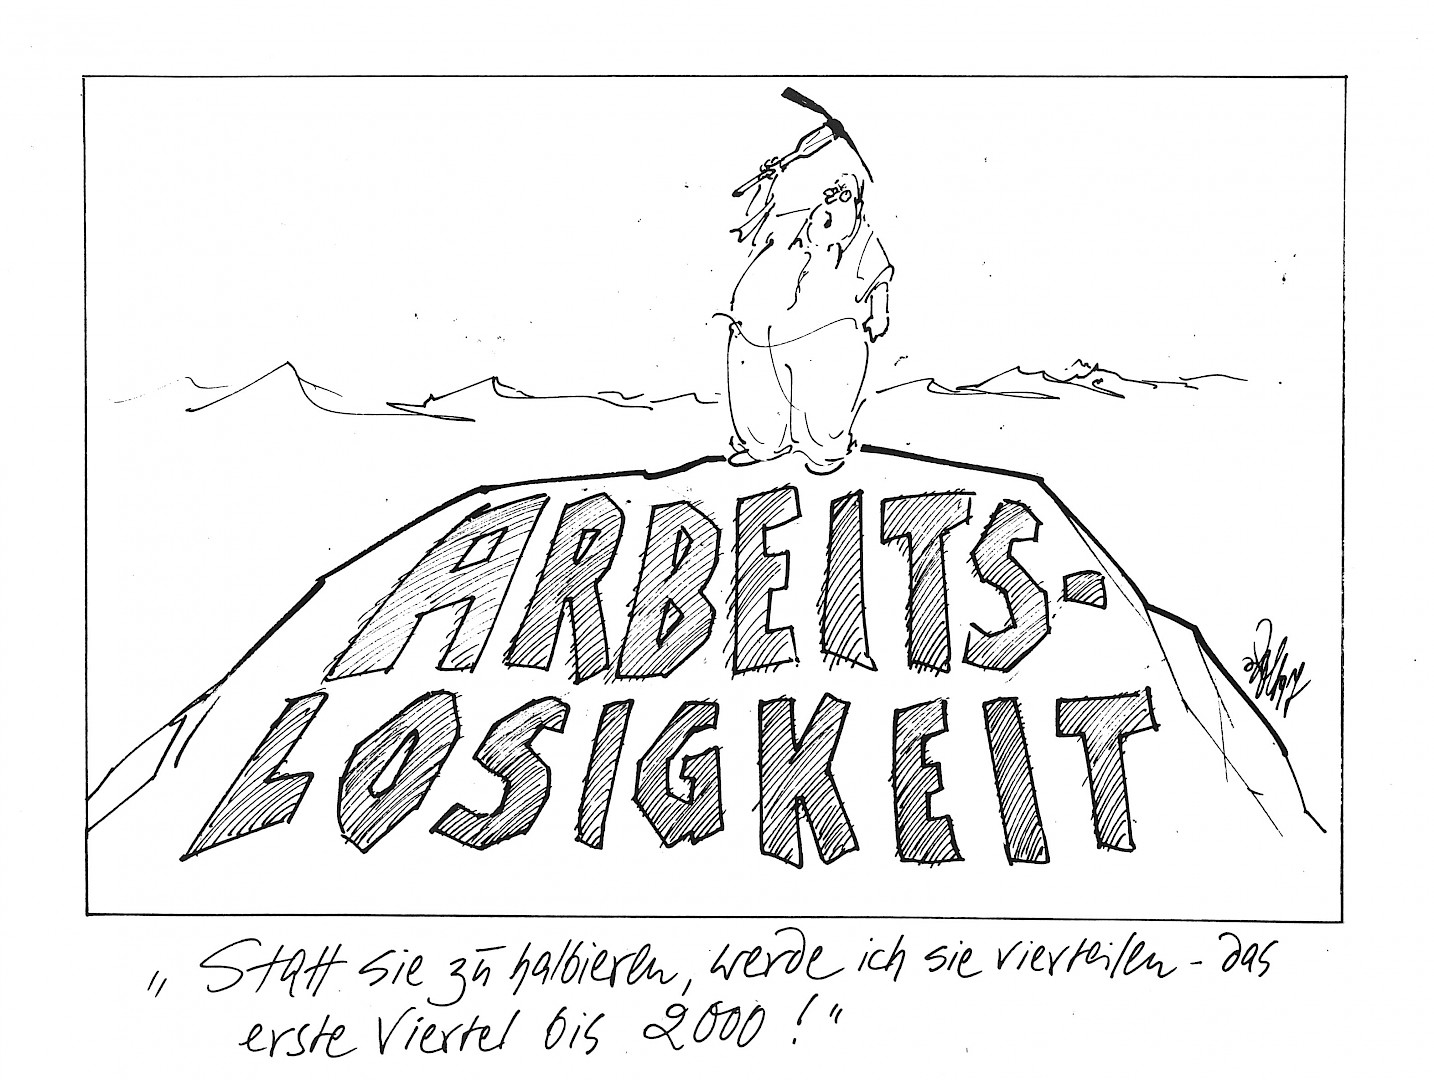 ARBEITS-
LOSIGKEIT
„Statt sie zu halbieren, werde ich sie vierteilen - das
erste Viertel bis 2000!“